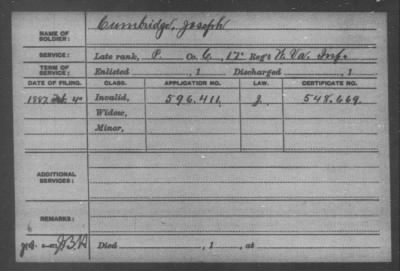 NAME OF SOLDIER: Cumbridge, Joseph
SERVICE: Late rank, P. Co. C, 17" Reg't W. Va. Inf.
TERM OF SERVICE: Enlisted , 1 Discharged , 1
DATE OF FILING. CLASS. APPLICATION NO. LAW. CERTIFICATE NO.
1887 4 Invalid, 596.411 J. 548.669.
Widow,
Minor,
ADDITIONAL SERVICES:
REMARKS:
Died , 1 , at